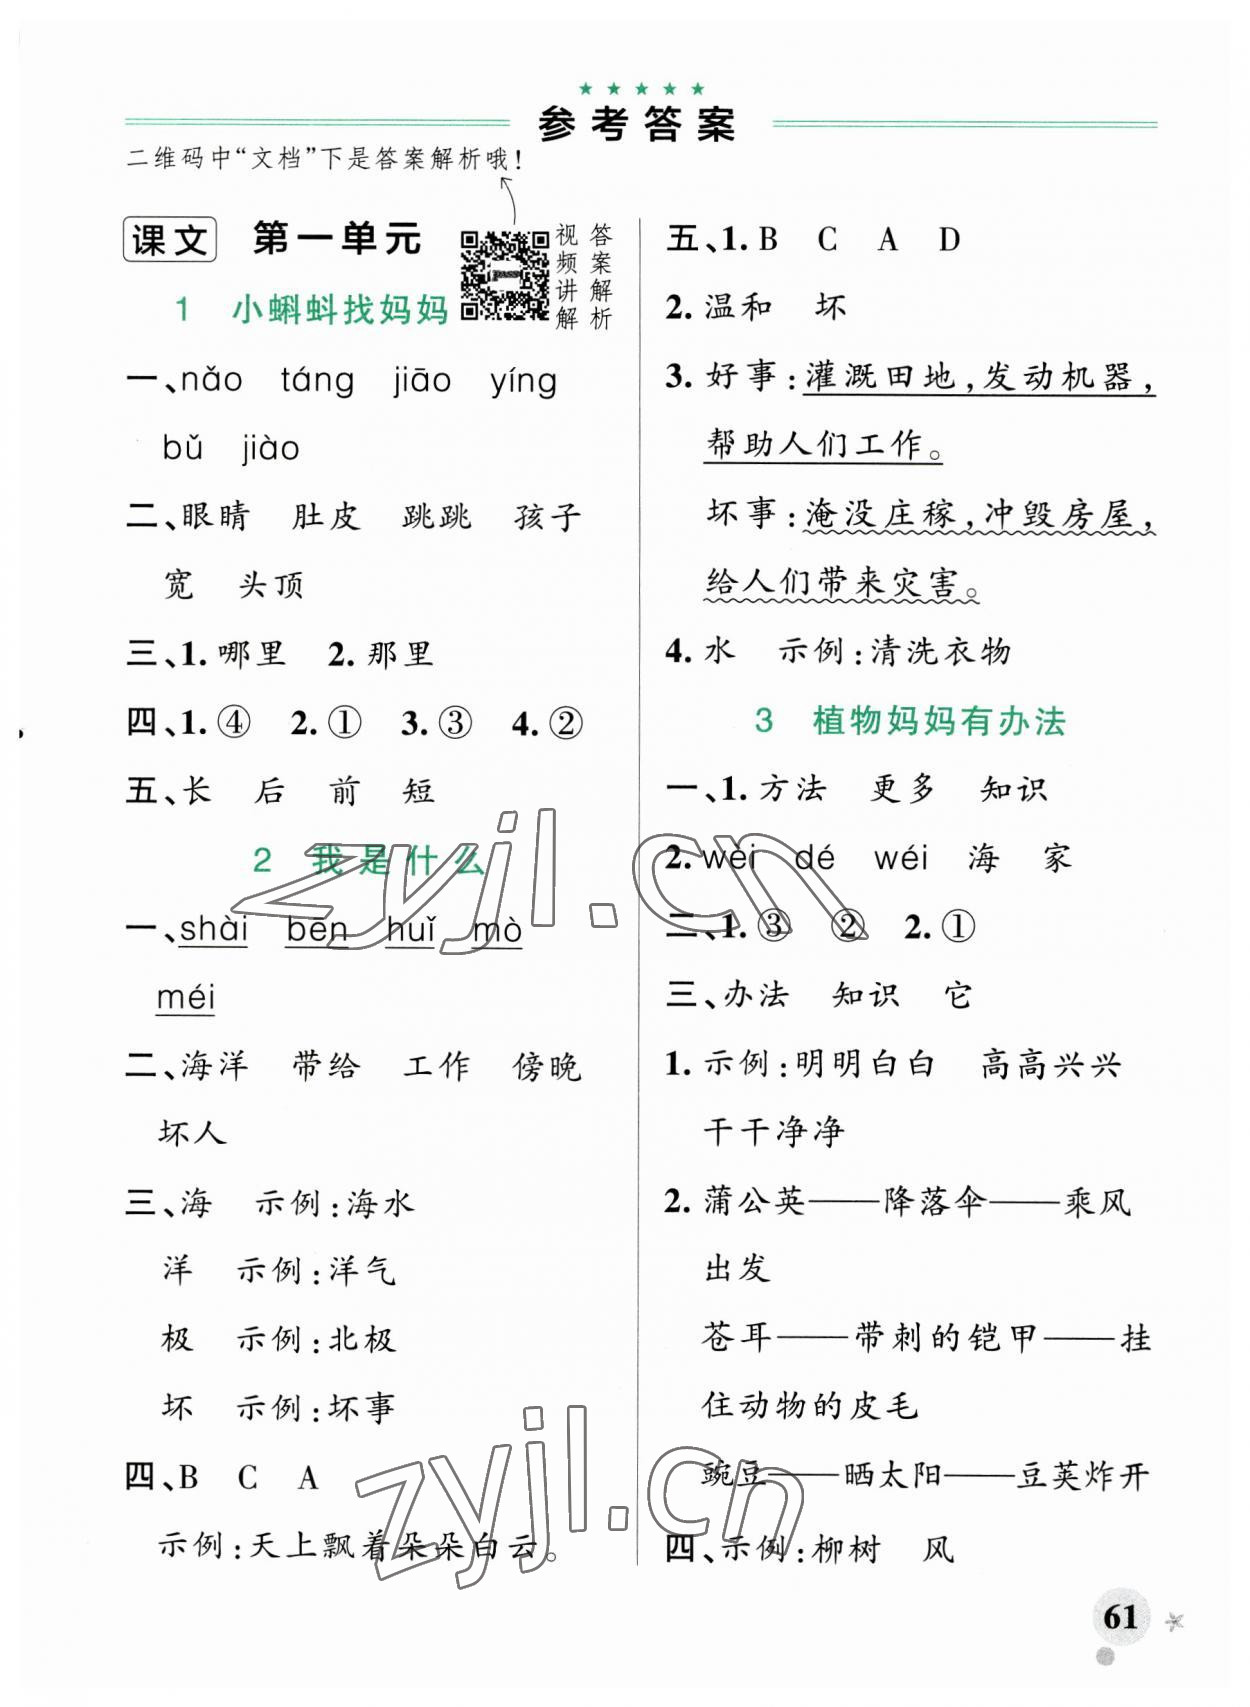 参考答案
二维码中“文档”下是答案解析哦！
课文 第一单元
pass
视频讲解
答案解析
1 小蝌蚪找妈妈
一、nǎo táng jiāo yíng
bǔ jiào
二、眼睛 肚皮 跳跳 孩子
宽 头顶
三、1.哪里 2.那里
四、1.④ 2.① 3.③ 4.②
五、长 后 前 短
2 我是什么
一、shài bēn huǐ mò
méi
二、海洋 带给 工作 傍晚
坏人
三、海 示例：海水
洋 示例：洋气
极 示例：北极
坏 示例：坏事
四、B C A
示例：天上飘着朵朵白云。
五、1.B C A D
2.温和 坏
3.好事：灌溉田地，发动机器，
帮助人们工作。
坏事：淹没庄稼，冲毁房屋，
给人们带来灾害。
4.水 示例：清洗衣物
3 植物妈妈有办法
一、1.方法 更多 知识
2.wèi dé wéi 海 家
二、1.③ ② 2.①
三、办法 知识 它
1.示例：明明白白 高高兴兴
干干净净
2.蒲公英——降落伞——乘风
出发
苍耳——带刺的铠甲——挂
住动物的皮毛
豌豆——晒太阳——豆荚炸开
四、示例：柳树 风
61
zyjl.cn
zyjl.cn